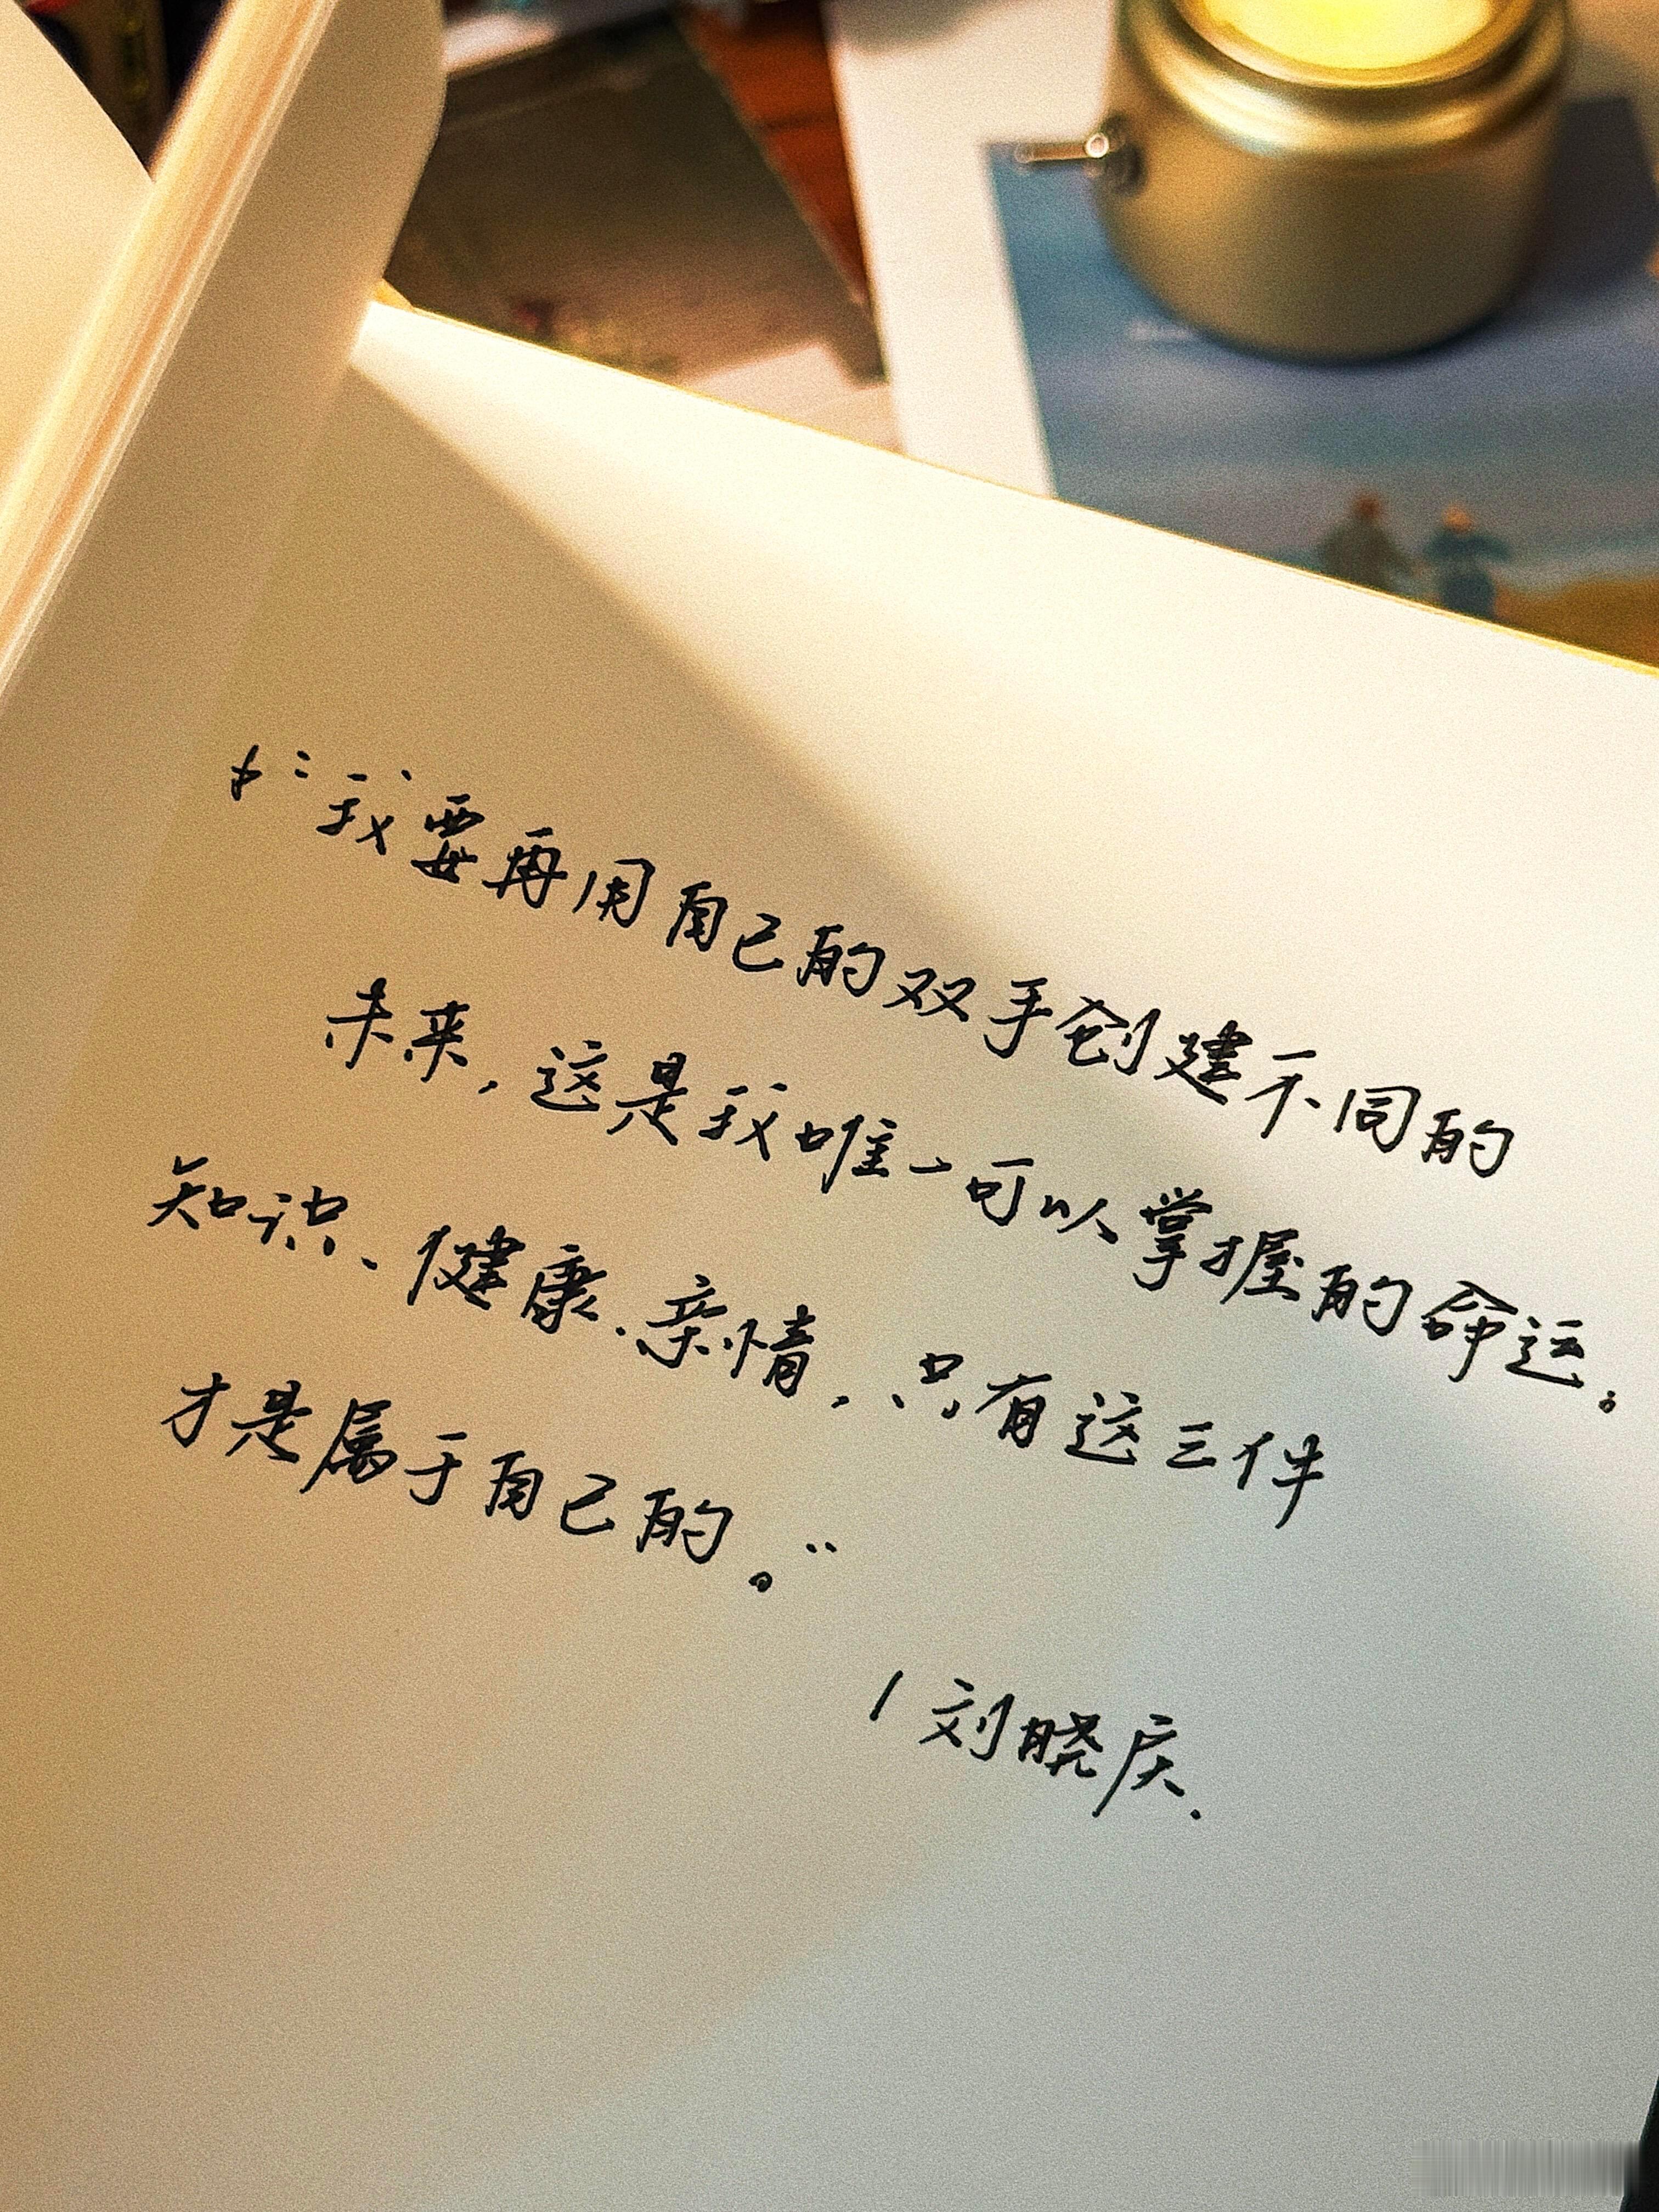 “我要再用自己的双手创建不同的
未来,这是我唯一可以掌握的命运。
知识、健康、亲情,只有这三件
才是属于自己的。”
/刘晓庆.